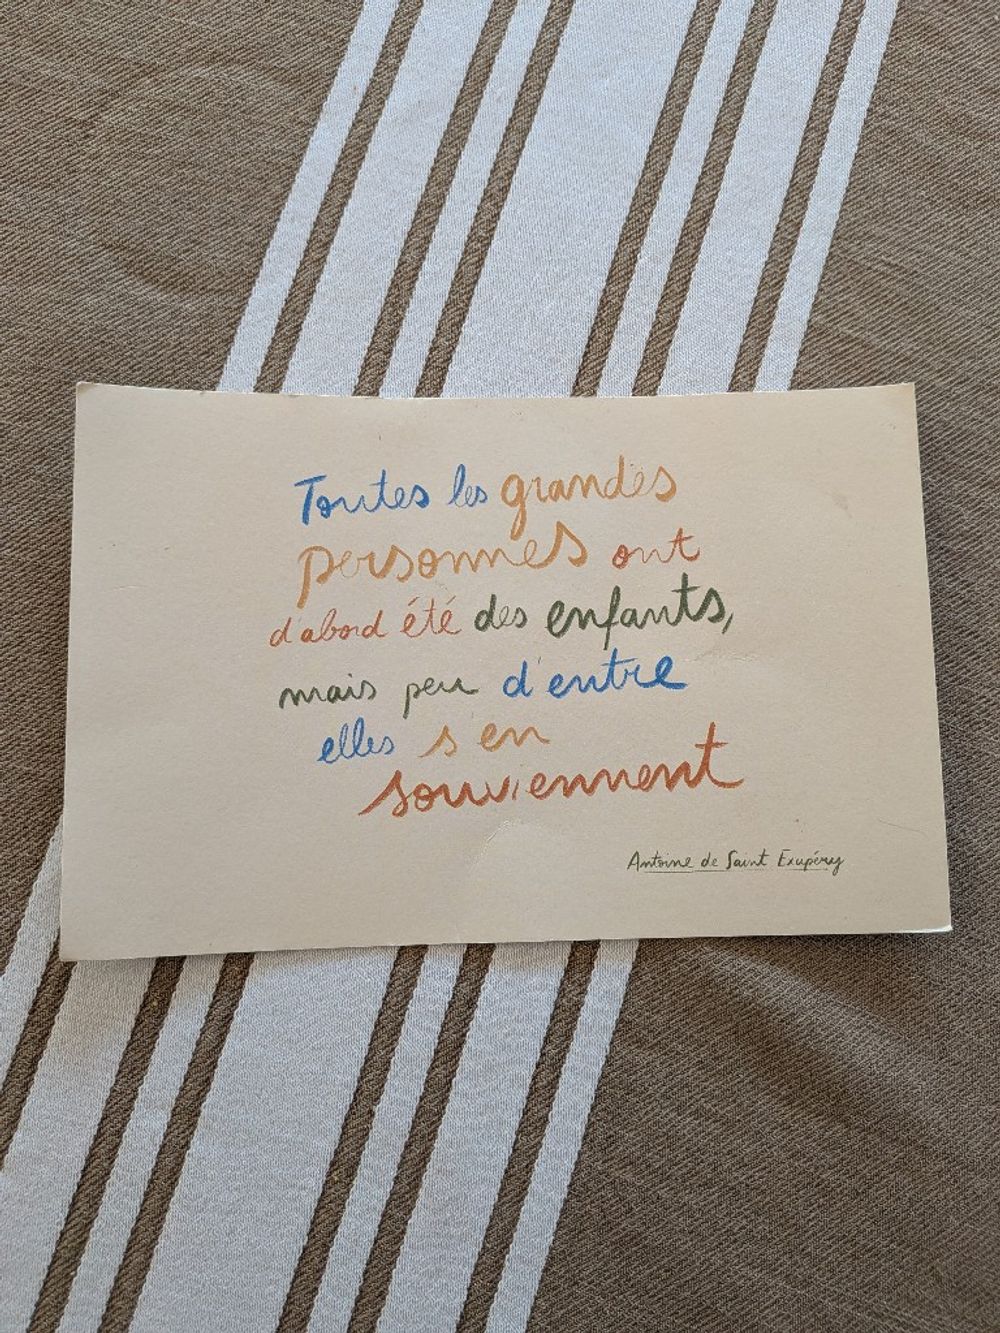 Toutes les grandes
personnes ont
d'abord été des enfants,
mais peu d'entre
elles s'en
souviennent
Antoine de Saint Exupéry